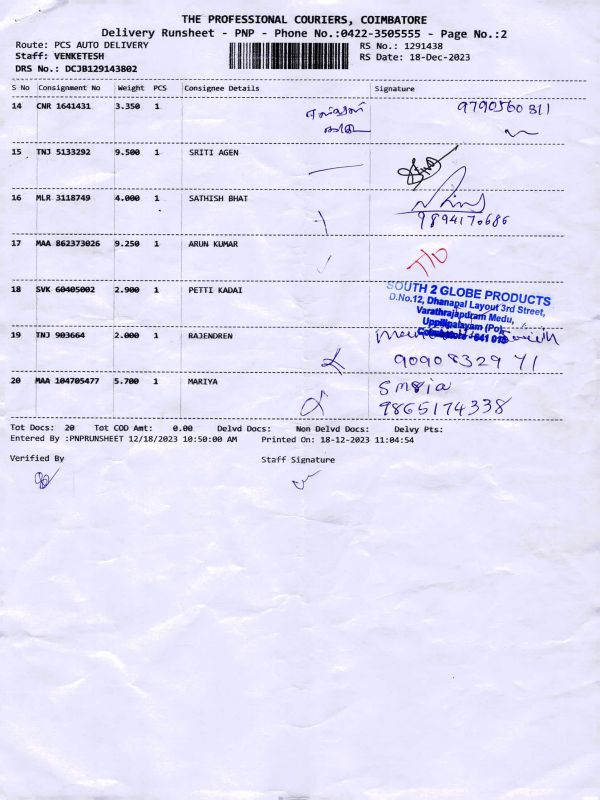 THE PROFESSIONAL COURIERS, COIMBATORE
Delivery Runsheet - PNP - Phone No.:0422-3505555 - Page No.:2
Route: PCS AUTO DELIVERY RS No.: 1291438
Staff: VENKETESH RS Date: 18-Dec-2023
DRS No.: DCJB129143B02
S No Consignment No Weight PCS Consignee Details Signature
14 CNR 1641431 3.350 1 9790560311
15 TNJ 5133292 9.500 1 SRITI AGEN
16 MLR 3118749 4.000 1 SATHISH BHAT
9894170686
17 MAA 862373026 9.250 1 ARUN KUMAR
18 SVK 60405002 2.900 1 PETTI KADAI
SOUTH 2 GLOBE PRODUCTS
D.No.12, Dhanapal Layout 3rd Street,
Varathrajapuram Medu,
Uppilipalayam (Po),
Coimbatore - 641 015
19 TNJ 903664 2.000 1 RAJENDREN
9090832971
20 MAA 104705477 5.700 1 MARIYA
9865174338
Tot Docs: 20 Tot COD Amt: 0.00 Delvd Docs: Non Delvd Docs: Delvy Pts:
Entered By :PNPRUNSHEET 12/18/2023 10:50:00 AM Printed On: 18-12-2023 11:04:54
Verified By Staff Signature